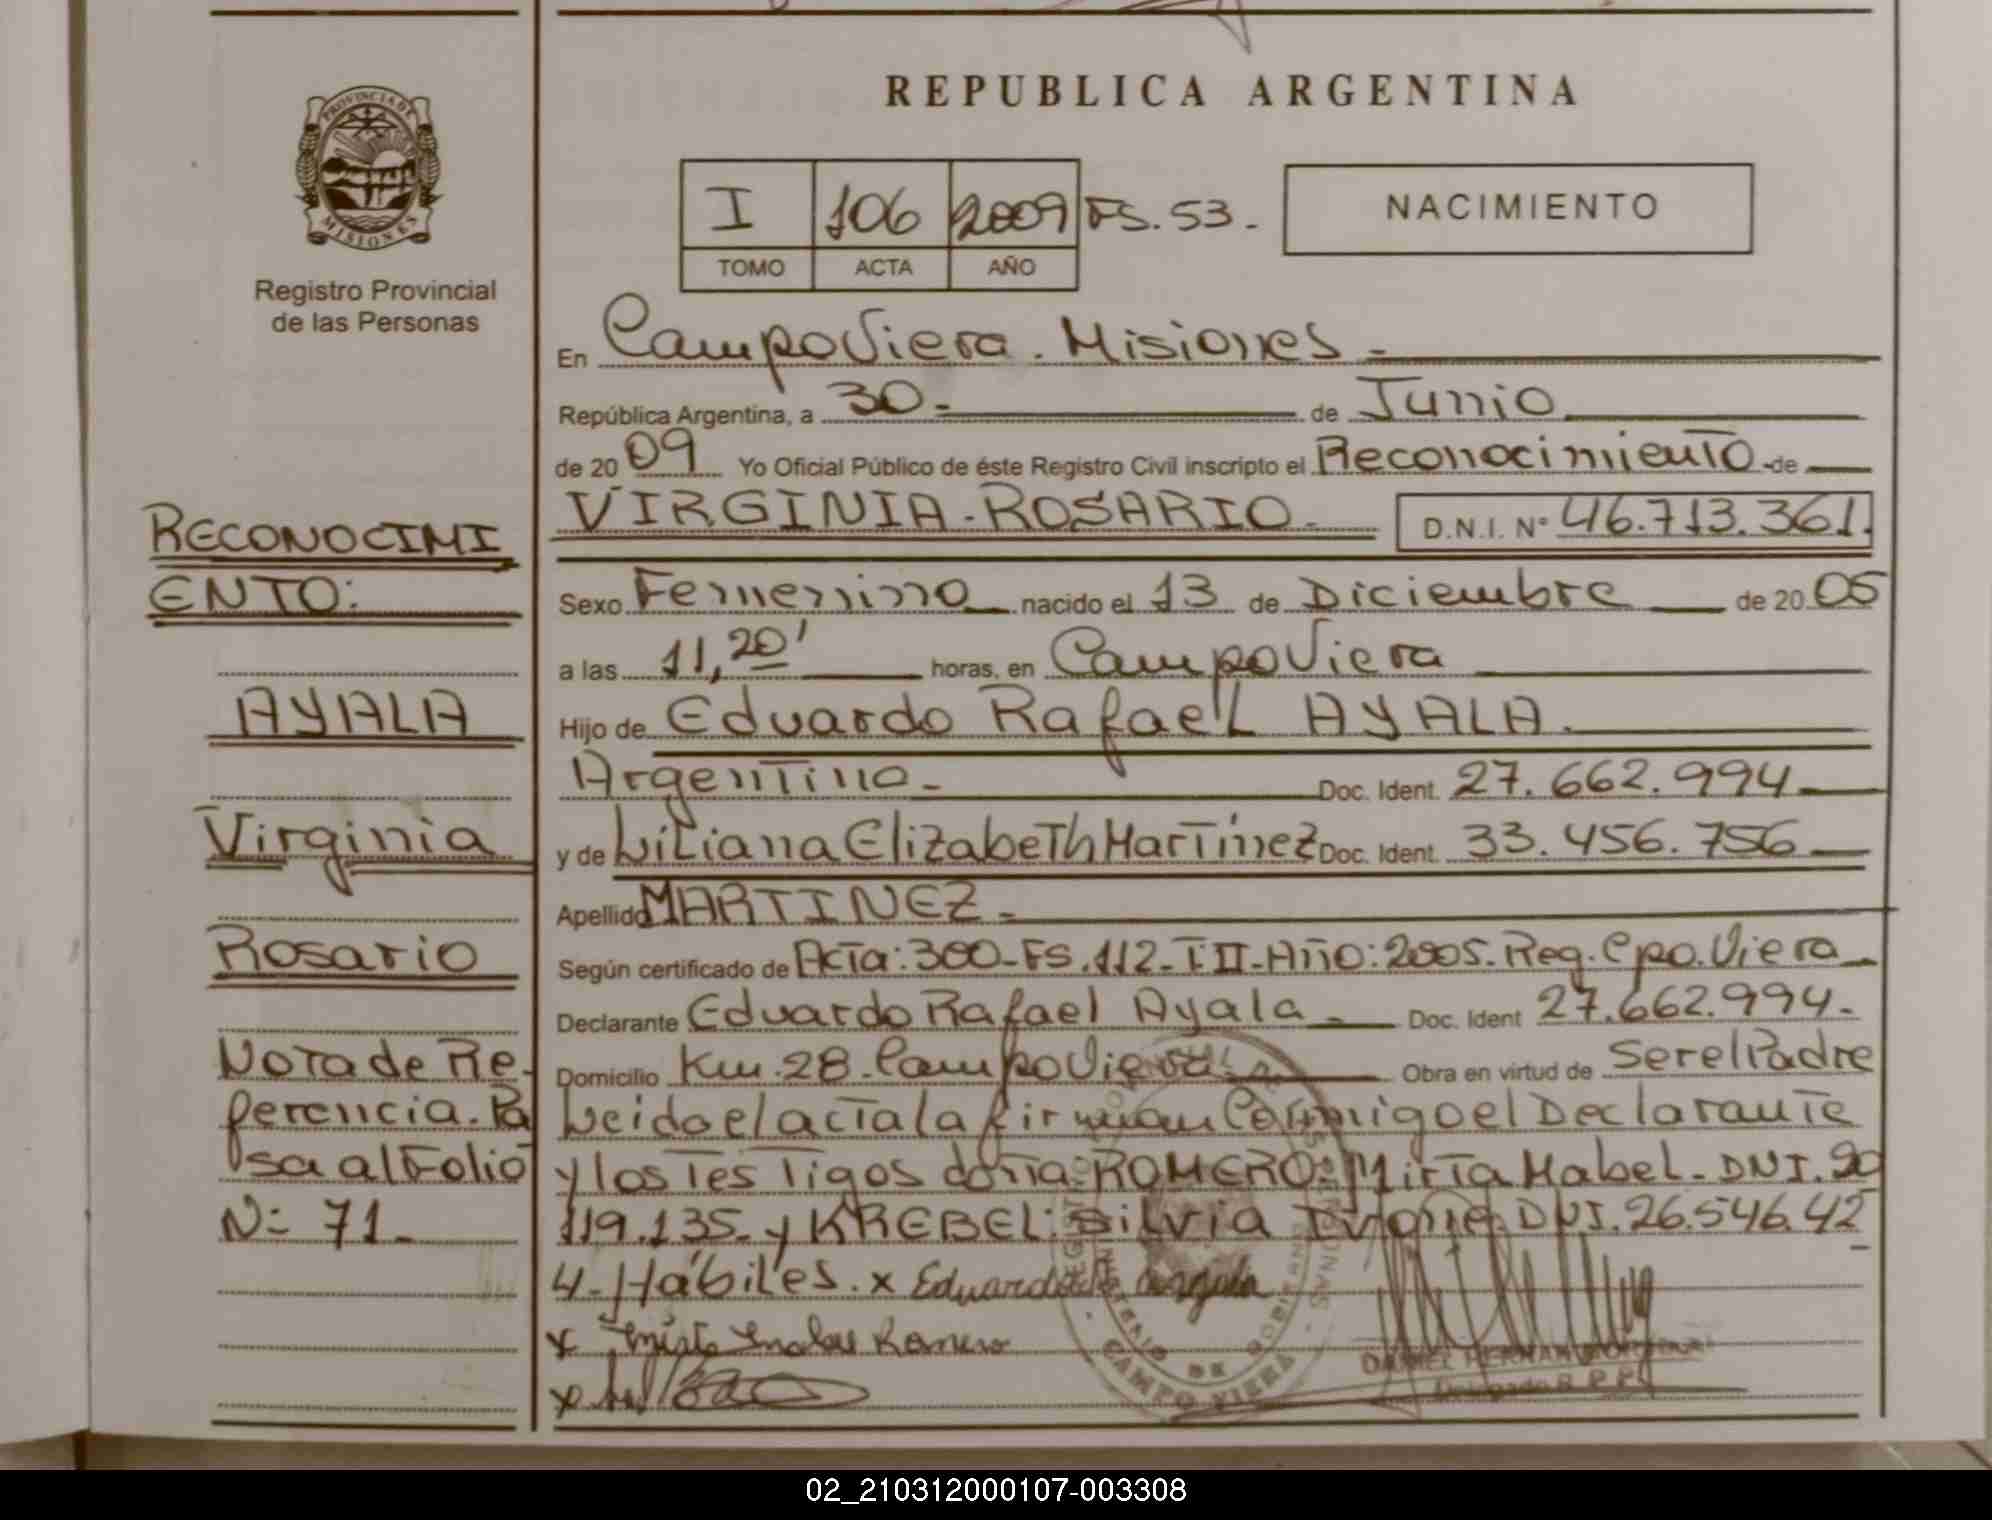 REPUBLICA ARGENTINA
PROVINCIA DE
MISIONES
Registro Provincial
de las Personas
I 106 2009 FS. 53.-
TOMO ACTA AÑO
NACIMIENTO
En CampoViera. Misiones.-
República Argentina, a 30.- de Junio
de 2009 Yo Oficial Público de éste Registro Civil inscripto el Reconocimiento de
VIRGINIA-ROSARIO.- D.N.I. N° 46.713.361.
Sexo Femenino nacido el 13 de Diciembre de 2005
a las 11,20' horas, en CampoViera
Hijo de Eduardo Rafael AYALA.
Argentino.- Doc. Ident. 27.662.994
y de Liliana Elizabeth Martínez Doc. Ident. 33.456.756
Apellido MARTINEZ.-
Según certificado de Acta: 300-FS.112-T:II-Año:2005.Reg.Cpo.Viera
Declarante Eduardo Rafael Ayala.- Doc. Ident 27.662.994.-
Domicilio Km.28.CampoViera Obra en virtud de Ser el Padre
Leida el acta la firman Conmigo el Declarante
y los Testigos doña: ROMERO: Mirta Mabel- DNI.20
119.135- y KREBEL: Silvia Ivone. DNI.26.546.42
4-Hábiles. x Eduardo Ayala
x Mirta Mabel Romero
x
RECONOCIMI
ENTO:
AYALA
Virginia
Rosario
Nota de Re-
ferencia. Pa
sa al Folio
N: 71.-
CAMPO VIERA
Delegado R.P.P.
02_210312000107-003308